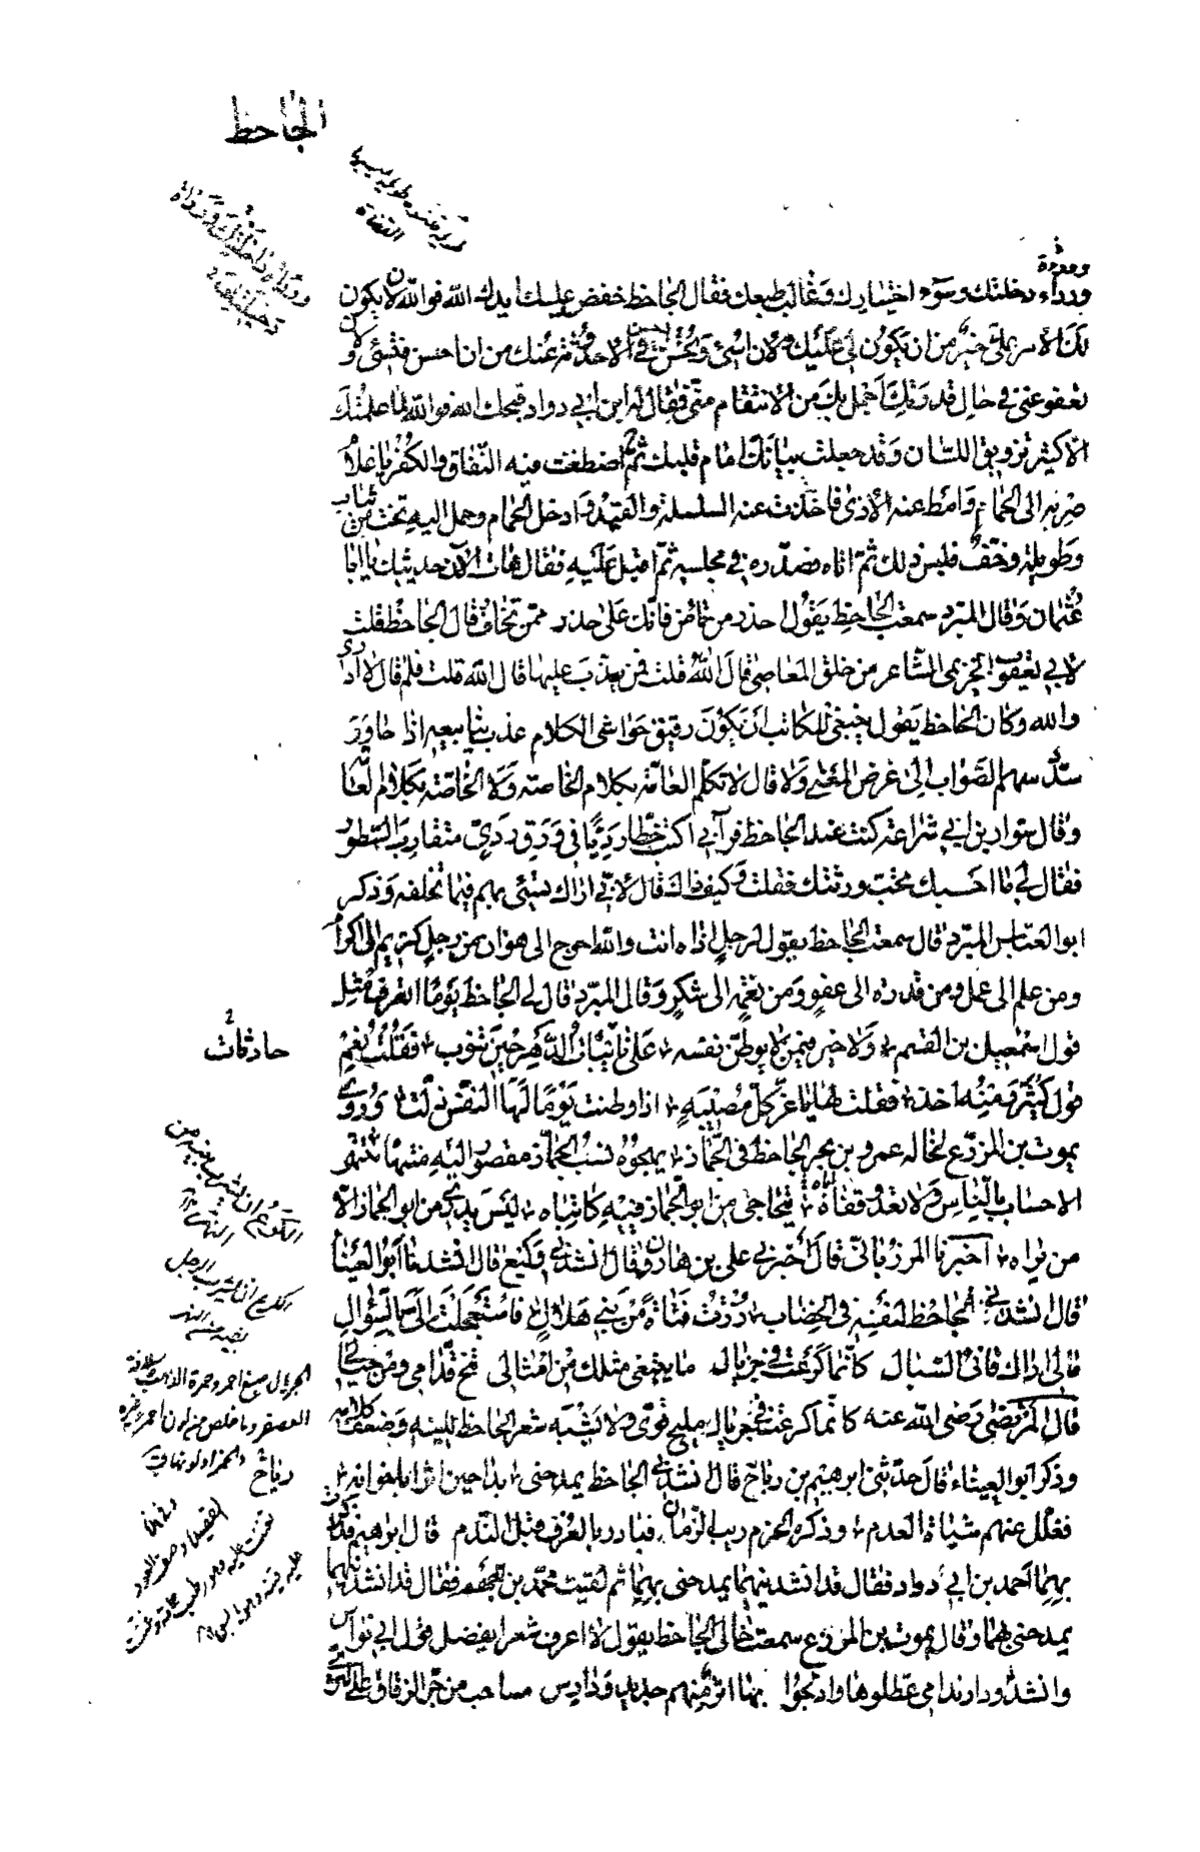 الجاحظ
ورداءة دخلتك وسوء اختيارك وغالب طبعك فقال الجاحظ خفض عليك ايدك الله فوالله لان يكون
لك الامر علي خير من ان يكون لي عليك ولان اسئ وتحسن احسن في الاحدوثة عنك من ان احسن فتسئ ولان
تعفو عني في حال قدرتك اجمل بك من الانتقام مني فقال له ابن ابي دواد قبحك الله فوالله ما علمتك
الا كثير تزويق اللسان وقد جعلت بيانك امام قلبك ثم اصطفت فيه النفاق والكفر يا غلام
صر به الى الحمام وامط عنه الاذى فاخذت عنه السلسلة والقيد وادخل الحمام وحمل اليه تخت من ثياب
وطويلة وخف فلبس ذلك ثم اتاه فصدره في مجلسه ثم اقبل عليه فقال هات الآن حديثك يا ابا
عثمان وقال المبرد سمعت الجاحظ يقول احذر من تأمن فانك على حذر ممن تخاف قال الجاحظ قلت
لابي يعقوب الخزيمي الشاعر من خلق المعاصي قال الله قلت فمن يعذب عليها قال الله قلت فلم قال لا ادري
والله وكان الجاحظ يقول ينبغي للكاتب ان يكون رقيق حواشي الكلام عذب ينابيعه اذا حاور
سدد سهم الصواب الى غرض المعنى ولا قال لا تكلم العامة بكلام الخاصة ولا الخاصة بكلام العامة
وقال سوار بن ابي شراعة كنت عند الجاحظ فرآني اكتب خطا رديا في ورق ردي متقارب السطور
فقال لي ما احسبك تحب ورثتك فقلت وكيف ذاك قال لاني اراك تسئ بهم فيما تخلفه وذكر
ابو العباس المبرد قال سمعت الجاحظ يقول لرجل اذاه انت والله احوج الى هوان من رجل كريم الى اكرام
ومن علم الى عمل ومن قدرة الى عفو ومن نعمة الى شكر وقال المبرد قال لي الجاحظ يوما اتعرف مثل
قول اسمعيل بن القسم ولا خير فيمن لا يوطن نفسه على نائبات الدهر حين تنوب فقلت نعم
قول كثير ومنه اخذ فقلت لها يا عز كل مصيبة اذا وطنت يوما لها النفس ذلت وروى
يموت بن المزرع لخاله عمرو بن بحر الجاحظ في الجماز يهجوه نسب الجماز مقصور اليه منتهاه تنتهي
الاحساب بالناس ولا تعدو قفاه يتحاجى من ابو الجماز فيه كاتباه ليس يدري من ابو الجماز الا
من يراه اخبرنا المرزباني قال اخبرني علي بن هارون قال انشدني وكيع قال انشدنا ابو العيناء
قال انشدني الجاحظ لنفسه في الخضاب زرت فتاة من بني هلال فاستعجلت الي بالسؤال
مالي اراك قاني السبال كأنما كرعت في جريال ما يبتغي مثلك من امثالي تنح قدامي ومن حيالي
قال المرتضى رضي الله عنه كأنما كرعت في جريال مليح قوي ولا يشبه شعر الجاحظ للينه وضعف كلامه
وذكر ابو العيناء قال حدثني ابرهيم بن رباح قال انشدني الجاحظ يمدحني بدا حين اثرا باخوانه
ففلل عنهم شباة العدم وذكره الحزم ريب الزمان فبادر بالعرف قبل الندم قال ابرهيم فذكرت
بهما احمد بن ابي دواد فقال قد انشدنيهما يمدحني بهما ثم لقيت محمد بن الجهم فقال قد انشدنيهما
يمدحني بهما وقال يموت بن المزرع سمعت خالي الجاحظ يقول لا اعرف شعرا يفضل قول ابي نواس
وانشد ودار ندامى عطلوها وادلجوا بها اثر منهم جديد ودارس مساحب من جر الزقاق على الثرى
حادثات
رباح